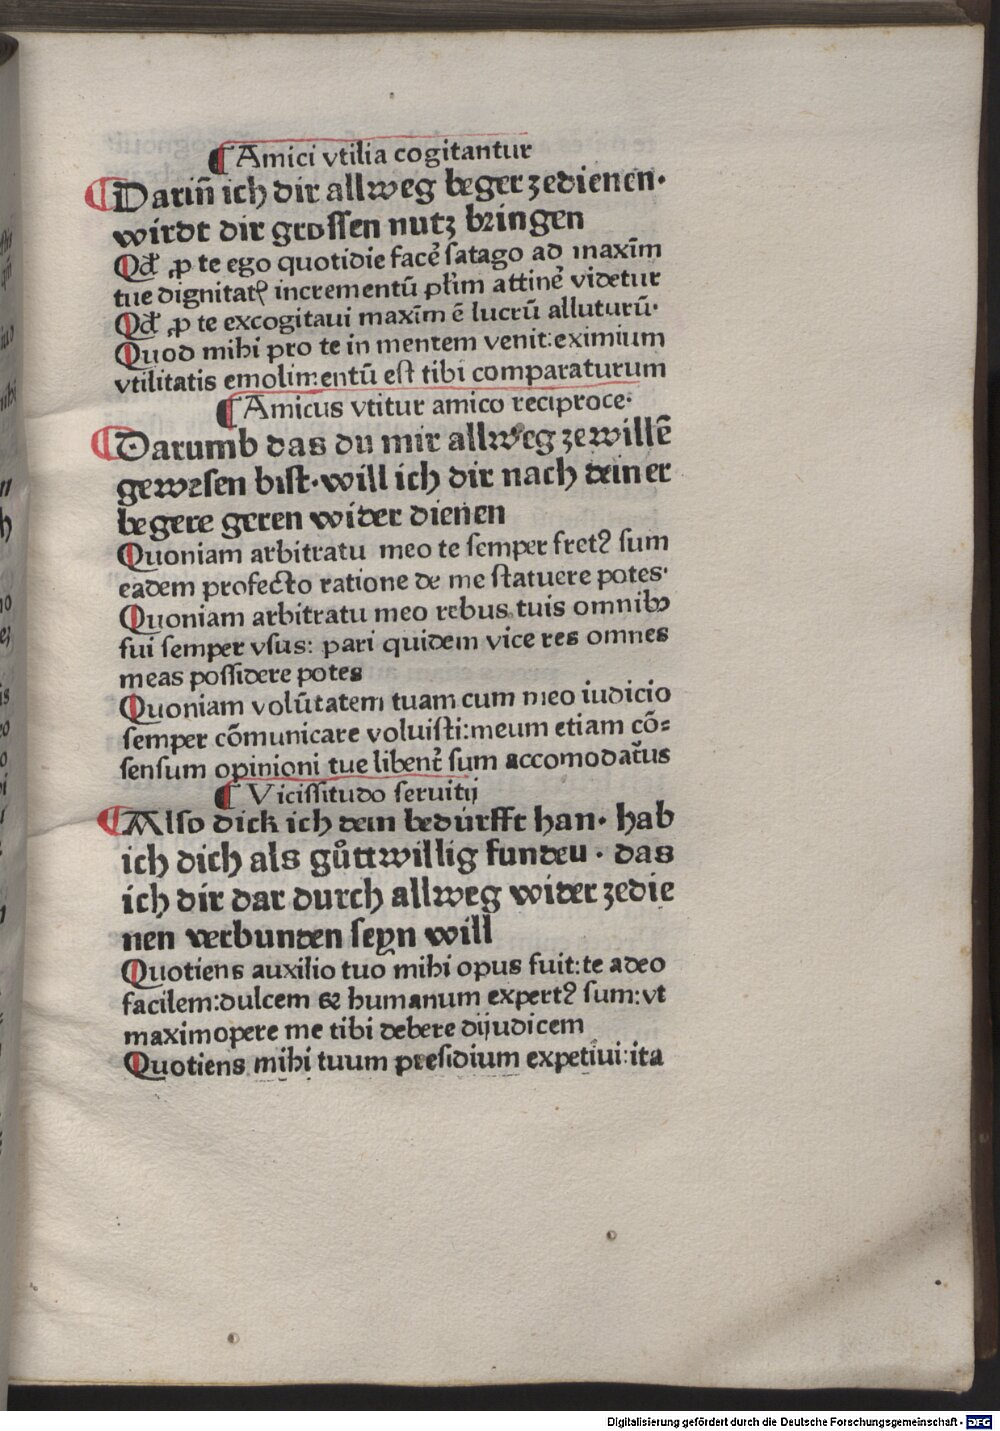 ¶ Amici vtilia cogitantur
¶ Darin̄ ich dir allweg beger zedienen·
wirdt dir grossen nutz bringen
Qd̛ ꝓ te ego quotidie facē satago ad maxīm
tue dignitatꝭ incrementū pl̛im attinē videtur
Qd̛ ꝓ te excogitaui maxīm ē lucrū alluturū·
Quod mihi pro te in mentem venit: eximium
vtilitatis emolimentū est tibi comparaturum
¶ Amicus vtitur amico reciproce·
¶ Darumb das du mir allweg ze willē
gewesen bist· will ich dir nach deiner
begere geren wider dienen
Quoniam arbitratu meo te semper fretꝰ sum
eadem profecto ratione de me statuere potes·
Quoniam arbitratu meo rebus tuis omnibꝰ
fui semper vsus: pari quidem vice res omnes
meas possidere potes
Quoniam volūtatem tuam cum meo iudicio
semper cōmunicare voluisti: meum etiam cō⸗
sensum opinioni tue libent̛ sum accomodatus
¶ Vicissitudo seruitij
¶ Also dick ich dein bedürfft han· hab
ich dich als gůttwillig fundeu· das
ich dir dar durch allweg wider zedie
nen verbunden seyn will
Quotiens auxilio tuo mihi opus fuit: te adeo
facilem: dulcem ⁊ humanum expertꝰ sum: vt
maximopere me tibi debere dijudicem
Quotiens mihi tuum presidium expetiui: ita
Digitalisierung gefördert durch die Deutsche Forschungsgemeinschaft - DFG